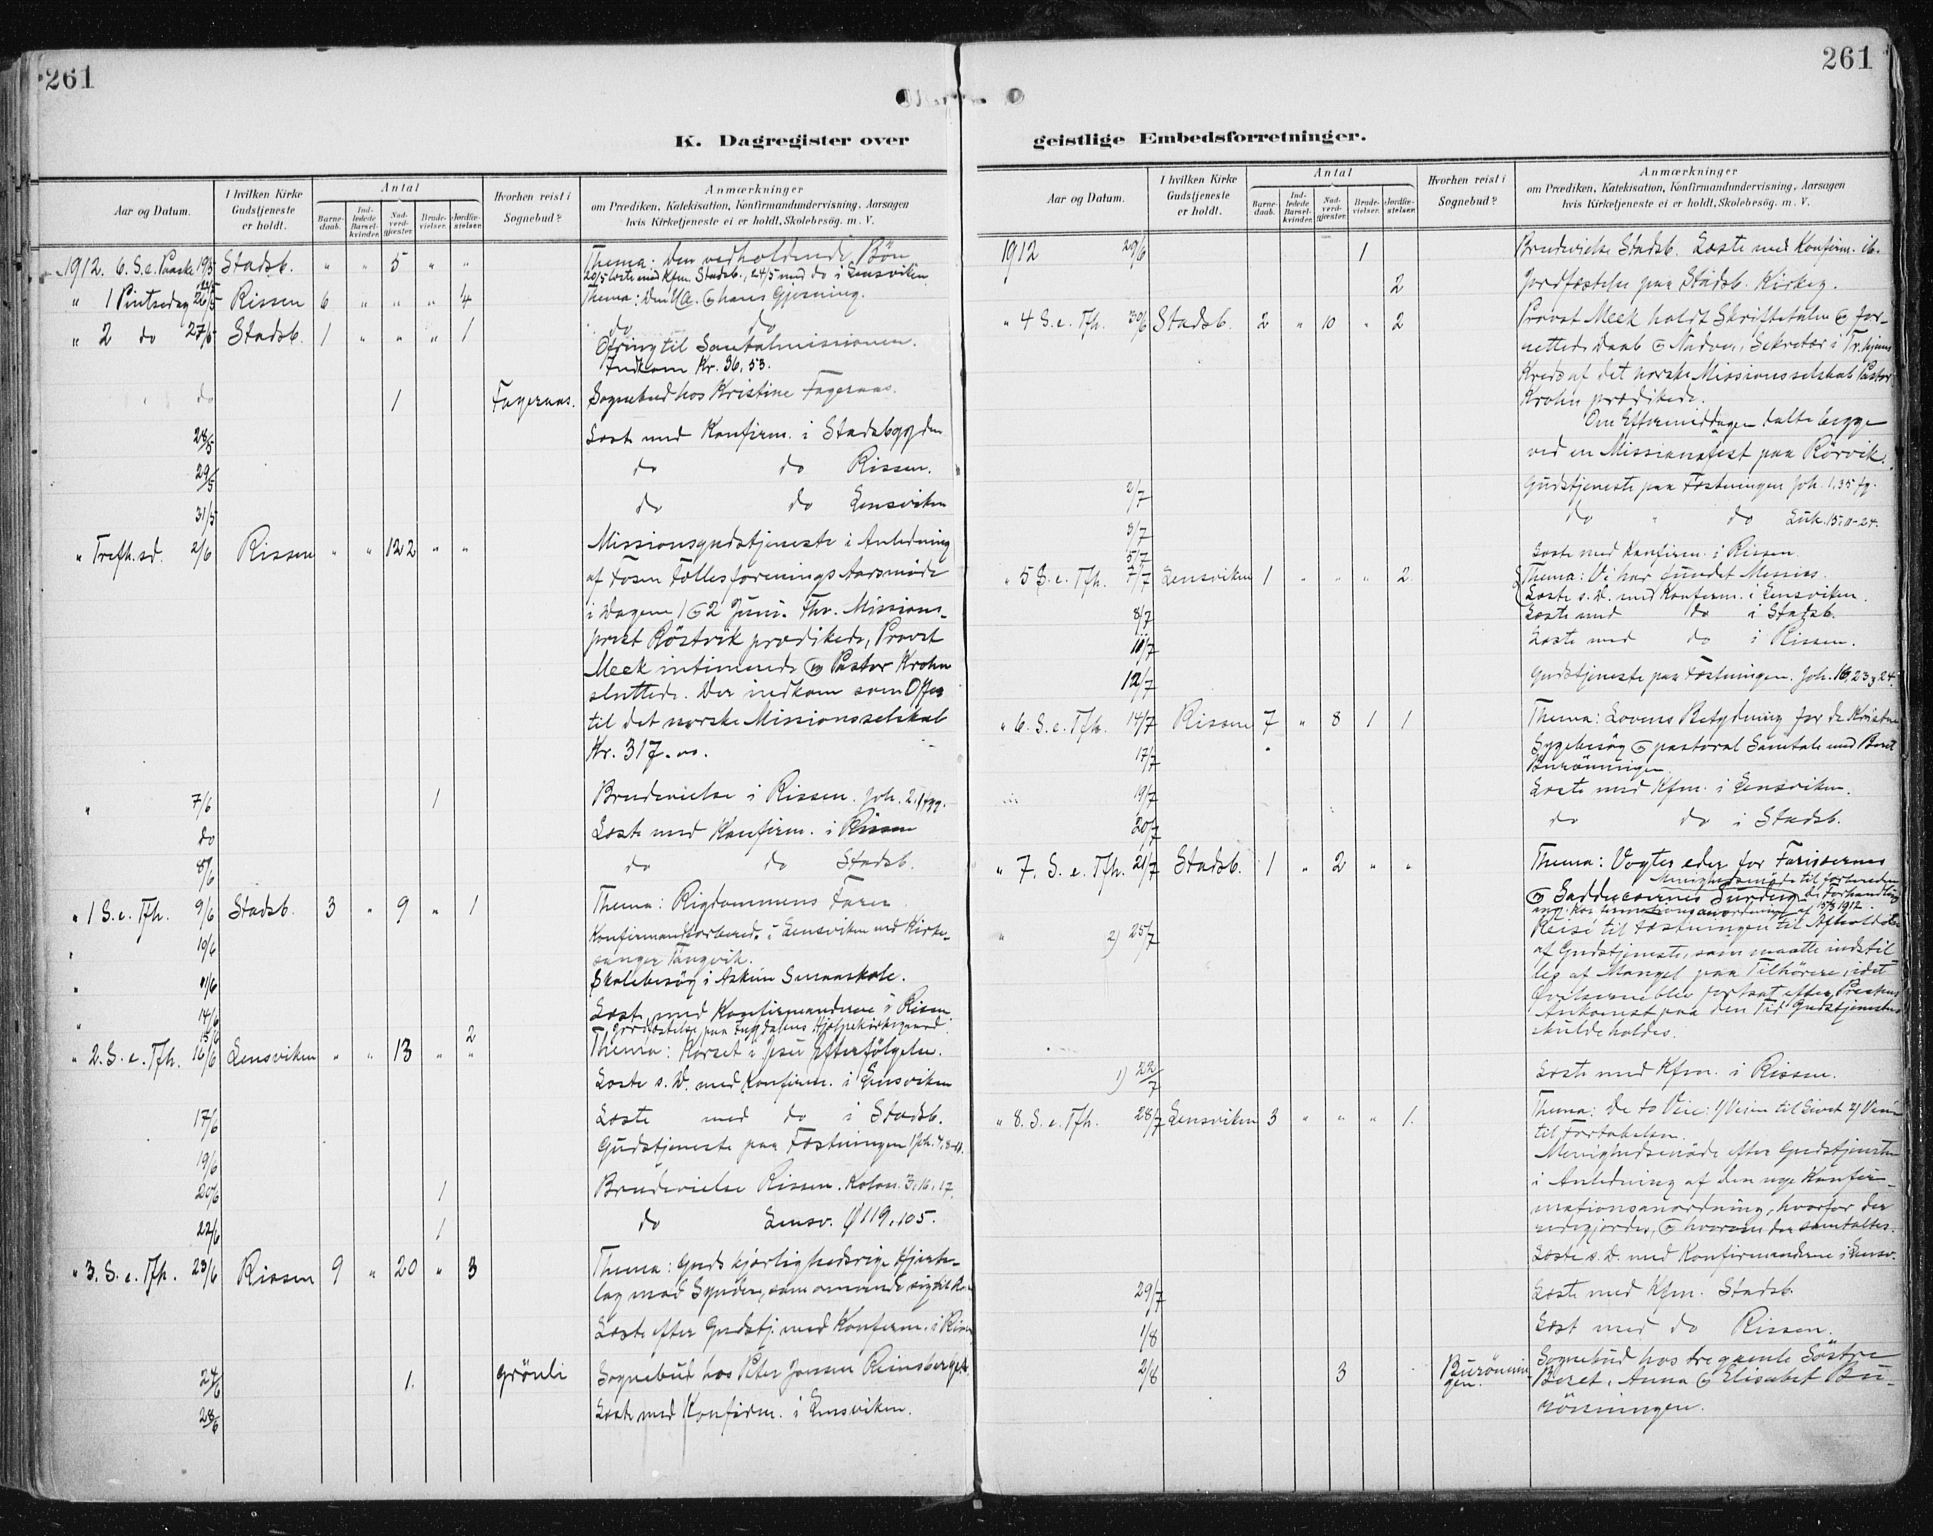 261
K. Dagregister over
Aar og Datum.
I hvilken Kirke Gudstjeneste er holdt.
Antal
Barne-daab.
Ind-ledede Barsel-kvinder.
Nad-verd-gjester.
Brude-vielser.
Jordfæ-stelser.
Hvorhen reist i Sognebud?
Anmærkninger
om Prædiken, Katekisation, Konfirmandundervisning, Aarsagen
hvis Kirketjeneste ei er holdt, Skolebesøg. m. V.
1912. 6. S. e. Paaske 19/5 Stadsb. " " 5 " " Thema: Den vedholdende Bøn
20/5 læste med Kfm. Stadsb., 24/5 med do i Lensviken
" 1 Pintsedag 26/5 Rissen 6 " " " 4 Thema: Den HA. & hans Gjerning.
" 2 do 27/5 Stadsb. 1 " " " 1 do do
Ofring til Santalmissionen.
Indkom Kr. 36,53.
do 1 Fagernas. Sognebud hos Kristine Fagernas.
28/5 Læste med Konfirm. i Stadsbygden
29/5 do do Rissen.
31/5 do do Lensviken
" Trefh. sd. 2/6 Rissen " " 122 " " Missionsgudstjeneste i Anledning
af Fosen Fællesforenings Aarsmøde
i Dagene 1 & 2 Juni. Fhv. Missions-
prest Röstvik prædikede, Provst
Meek intimerede og Pastor Krohn
sluttede. Der indkom som Offer
til det norske Missionsselskab
Kr. 317.00.
" 7/6 1 Brudevielse i Rissen. Joh. 2,1 fgg.
do Læste med Konfirm. i Rissen
8/6 do do Stadsb.
" 1 S. e. Tfh. 9/6 Stadsb. 3 " 9 " 1 Thema: Rigdommens Farer
" 10/6 Konfirmandforbered. i Lensviken ved Kirke-
sanger Tangvik.
" 11/6 Skolebesøg i Askim Smaaskole.
" 14/6 Læste med Konfirmanderne i Rissen
15/6 2 Jordfæstelse paa Ingdalens Hjælpekirkegaard.
" 2. S. e. Tfh. 16/6 Lensviken " " 13 " " Thema: Korset i Jesu Efterfölgelse.
Læste s. D. med Konfirm. i Lensviken
17/6 Læste med do i Stadsb.
19/6 Gudstjeneste paa Fæstningen
20/6 1 Brudevielse Rissen. Kolos. 3,16,17.
22/6 1 do Lensv. Ø 119,105.
" 3. S. e. Tfh. 23/6 Rissen 9 " 20 " 3 Thema: Guds kjærlighedsrige Hjerte-
lag mod Syndere, som omvende sig
Læste efter Gudstj. med Konfirm. i Rissen
24/6 1. Grönli Sognebud hos Peter Jonsen Reinsberget.
28/6 Læste med Konfirm. i Lensviken.
261
geistlige Embedsforretninger.
Aar og Datum.
I hvilken Kirke Gudstjeneste er holdt.
Antal
Barne-daab.
Ind-ledede Barsel-kvinder.
Nad-verd-gjester.
Brude-vielser.
Jordfæ-stelser.
Hvorhen reist i Sognebud?
Anmærkninger
om Prædiken, Katekisation, Konfirmandundervisning, Aarsagen
hvis Kirketjeneste ei er holdt, Skolebesøg. m. V.
1912 29/6 1 Brudevielse Stadsb. Læste med Konfirm. ib.
2 Jordfæstelse paa Stadsb. Kirkeg.
" 4 S. e. Tfh. 30/6 Stadsb. 2 " 10 " 2 Provst Meek holdt Skriftetalen & for-
rettede Daab & Nadver, Sekretær i Tr.hjems
Kreds af det norske Missionsselskab Pastor
Krohn prædikede.
Om Eftermiddagen talte begge
ved en Missionsfest paa Rörvik.
2/7 Gudstjeneste paa Fæstningen Joh. 1,35 fg.
3/7 do " do Luk. 15,11-24.
5/7 Læste med Konfirm. i Rissen.
" 5 S. e. Tfh. 7/7 Lensviken 1 " " " 2. Thema: Vi har fundet Messias.
Læste s. D. med Konfirm. i Lensviken.
8/7 Læste med do i Stadsb.
10/7 Læste med do i Rissen.
12/7 Gudstjeneste paa Fæstningen. Joh. 16,23 & 24.
" 6. S. e. Tfh. 14/7 Rissen 7 " 8 1 1 Thema: Lovens Betydning for de Kristne
17/7 Sygebesøg & pastoral Samtale med Beret
Burönningen.
19/7 Læste med Kfm. i Lensviken.
20/7 do do i Stadsb.
" 7. S. e. Tfh. 21/7 Stadsb. 1 " 2 " " Thema: Vogter eder for Farisæernes
& Sadducæernes Surdeig.
Menighedsmøde til forberedende Forhandling
ang. Konfirmationsanordningen af 1912.
" 2) 25/7 Reise til Fæstningen til Afholdelse
af Gudstjeneste, som maatte indstil-
les af Mangel paa Tilhörere, idet
Øvelserne blev fortsat efter Prestens
Ankomst paa den Tid Gudstjenesten
skulde holdes.
1) 22/7 Læste med Kfm. i Rissen.
" 8. S. e. Tfh. 28/7 Lensviken 3 " " " 1. Thema: De to Veie: 1/ Veien til Livet 2/ Veien
til Fortabelsen.
Menighedsmøde efter Gudstjenesten
i Anledning af den nye Konfir-
mationsanordning, hvorfor der
redegjordes, & hvorom der samtaltes.
Læste s. D. med Konfirmanderne i Lensv.
29/7 Læste med Kfm. Stadsb.
1/8 Læst med do Rissen.
2/8 3 Burönnin-
gen. Sognebud hos tre gamle Söstre
Beret, Anna & Elisabet Bu-
rönningen.